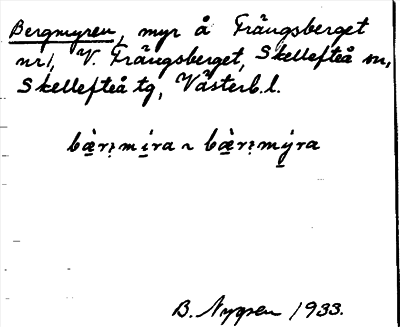 Bergmyren, myr å Frängsberget
nr 1, V. Frängsberget, Skellefteå sn,
Skellefteå tg, Västerb. l.
bæ̀r₂mi̱ra ~ bæ̀r₂mýra
B. Nygren 1933.